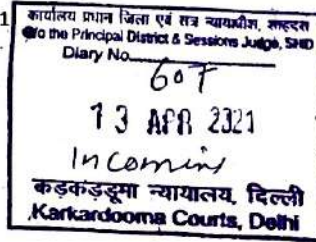 1
कार्यालय प्रधान जिला एवं सत्र न्यायाधीश, शाहदरा
O/o the Principal District & Sessions Judge, SHD
Diary No.
607
13 APR 2021
Incoming
कड़कड़डूमा न्यायालय, दिल्ली
Karkardooma Courts, Delhi